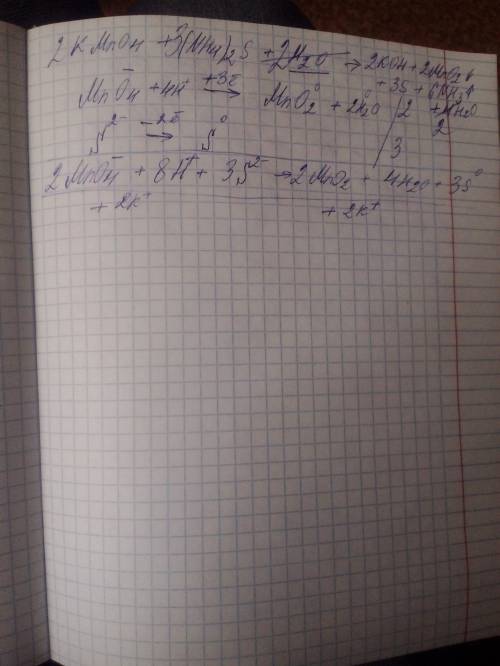 2 KMnO4 + 3(NH4)2S + 2H2O → 2KOH + 2MnO2↓
+ 3S + 6NH3↑
MnO4⁻ + 4H⁺ +3e̅ → MnO2⁰ + 2H2O | 2 + H2O
S²⁻ -2e̅ → S⁰ | 3
2 MnO4⁻ + 8H⁺ + 3S²⁻ → 2MnO2 + 4H2O + 3S⁰
+ 2K⁺ + 2K⁺